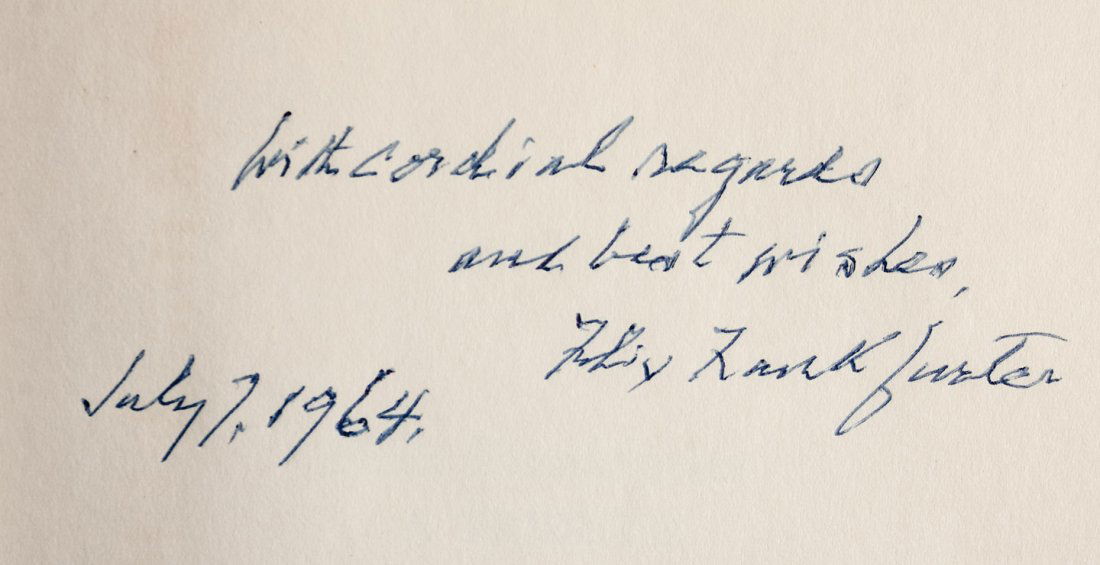 with cordial regards
and best wishes,
Felix Frankfurter
July 7, 1964.